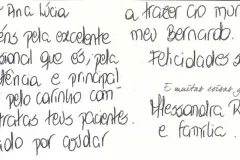 Ana Lúcia
éns pela excelente
sional que és, pela
tência e principal
pelo carinho com
tratas teus pacientes.
ado por ajudar
a trazer ao mun
meu Bernardo.
Felicidades s
E muitas coisas
Alessandra R
e família.